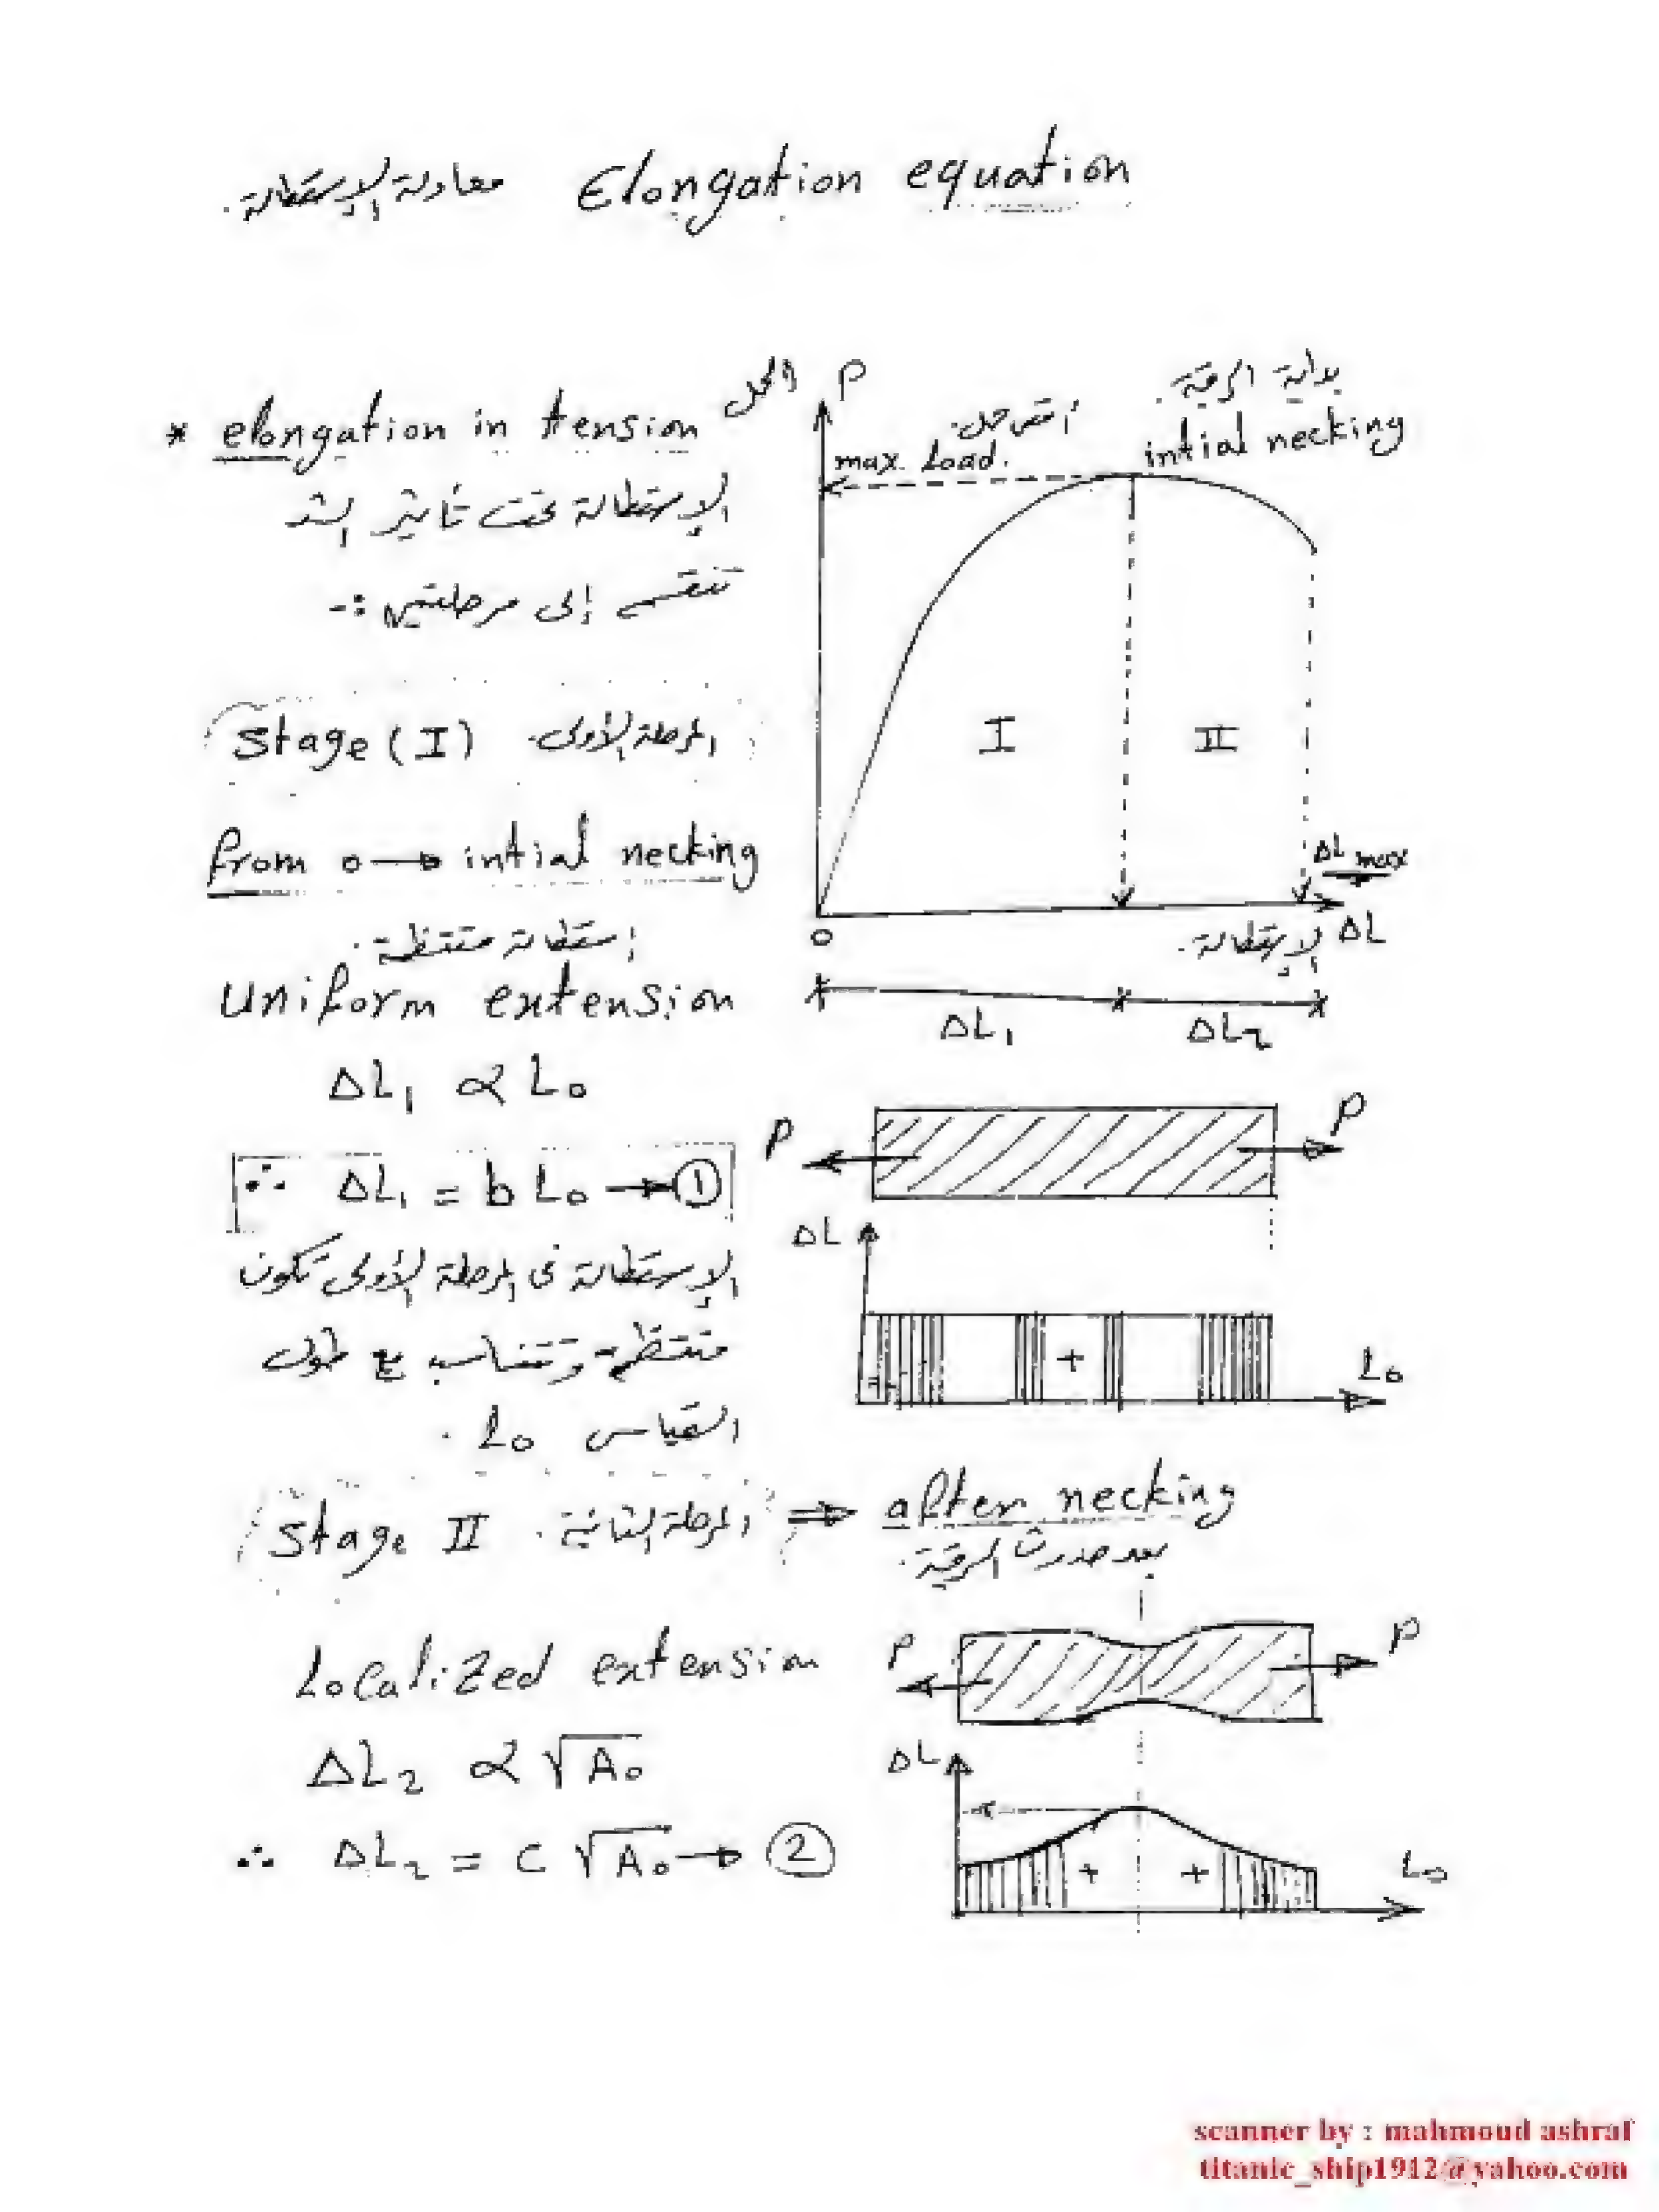 معادلة الإستطالة. Elongation equation
* elongation in tension
الإستطالة تحت تأثير الشد
تنقسم إلى مرحلتين :-
الحمل P
أقصى حمل.
max. Load.
بداية الرقبة.
intial necking
I
II
ΔL max
o
الإستطالة. ΔL
ΔL₁
ΔL₂
Stage (I) المرحلة الأولى.
from o → intial necking
إستطالة منتظمة.
Uniform extension
ΔL₁ α L₀
∴ ΔL₁ = b L₀ → ①
الإستطالة فى المرحلة الأولى تكون
منتظمة وتتناسب مع طول
القياس L₀ .
P
P
ΔL
+
L₀
Stage II المرحلة الثانية. ⇒ after necking
بعد حدوث الرقبة.
Localized extension
ΔL₂ α √A₀
∴ ΔL₂ = C √A₀ → ②
P
P
ΔL
+ +
L₀
scanner by : mahmoud ashraf
titanic_ship1912@yahoo.com